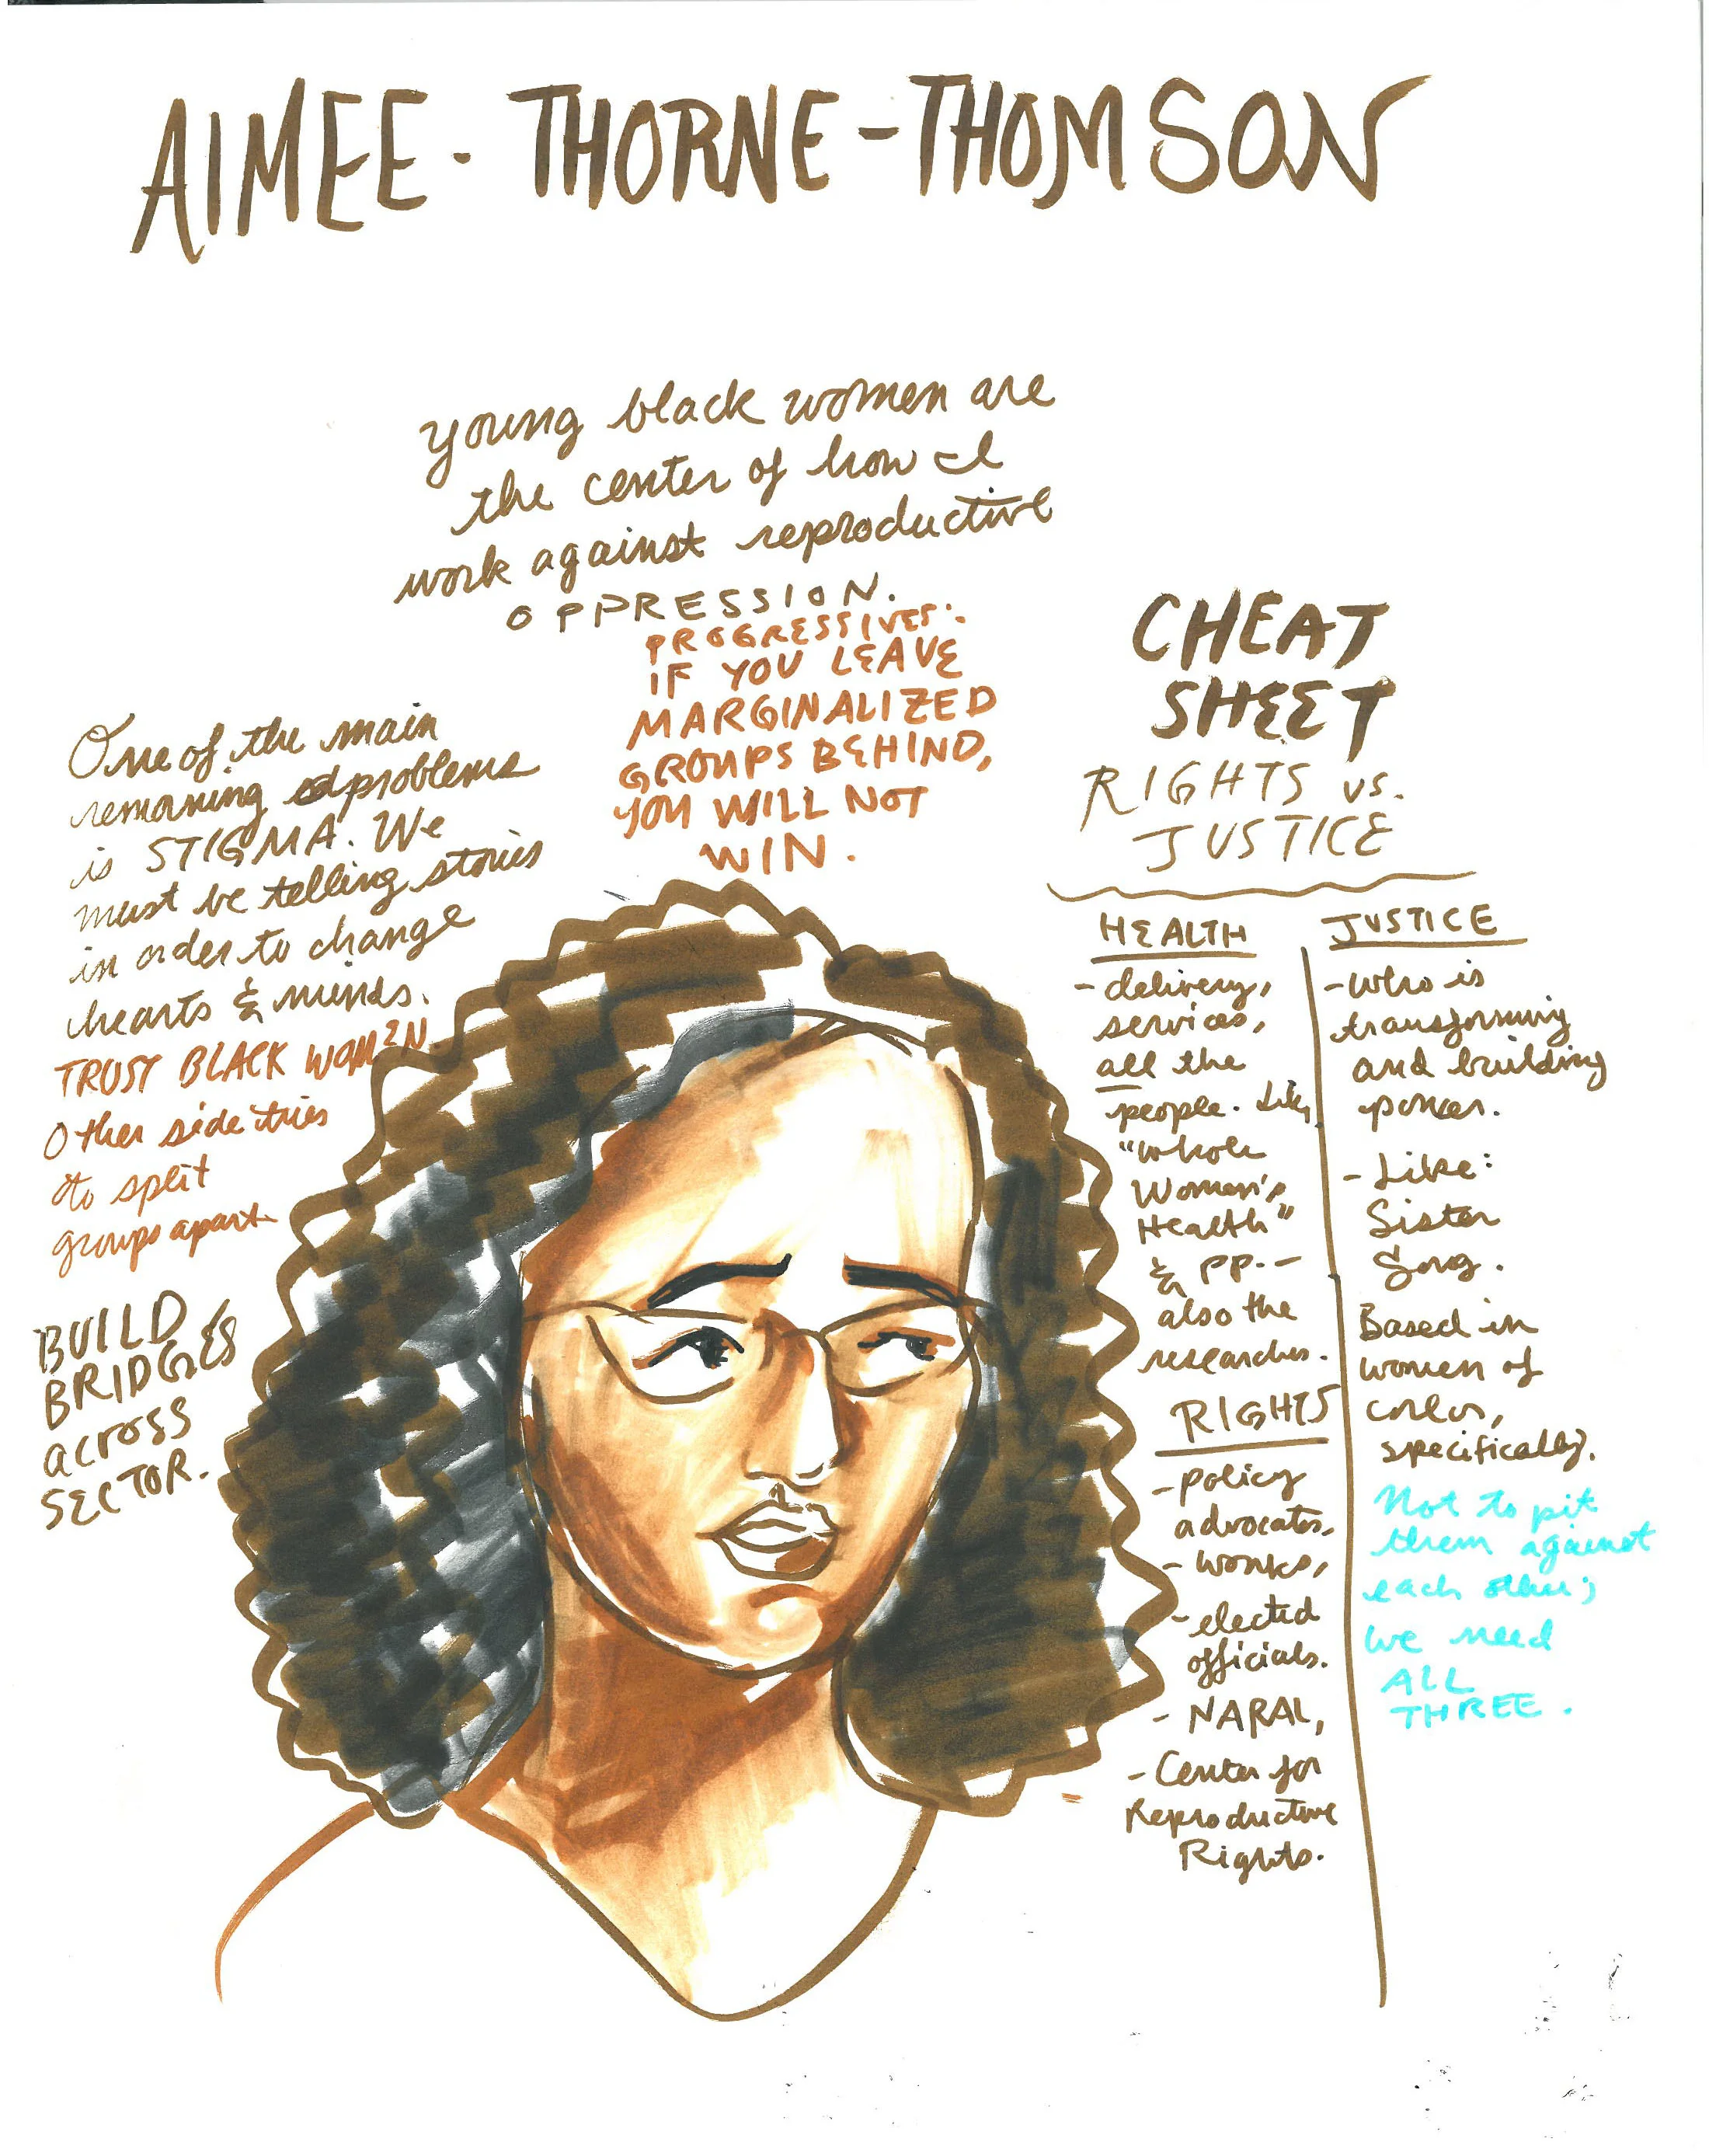 AIMEE - THORNE - THOMSON
young black women are
the center of how I
work against reproductive
OPPRESSION.
PROGRESSIVES:
IF YOU LEAVE
MARGINALIZED
GROUPS BEHIND,
YOU WILL NOT
WIN.
One of the main
remaining problems
is STIGMA. We
must be telling stories
in order to change
hearts & minds.
TRUST BLACK WOMEN.
Other side tries
to split
groups apart.
BUILD
BRIDGES
across
SECTOR.
CHEAT
SHEET
RIGHTS vs.
JUSTICE
HEALTH
- delivery,
services,
all the
people. Like,
"Whole
Women's
Health"
& PP. -
also the
researches.
RIGHTS
- policy
advocates,
- wonks,
- elected
officials.
- NARAL,
- Center for
Reproductive
Rights.
JUSTICE
- Who is
transforming
and building
power.
- Like:
Sister
Song.
Based in
women of
color,
specifically.
Not to pit
them against
each other;
we need
ALL
THREE.